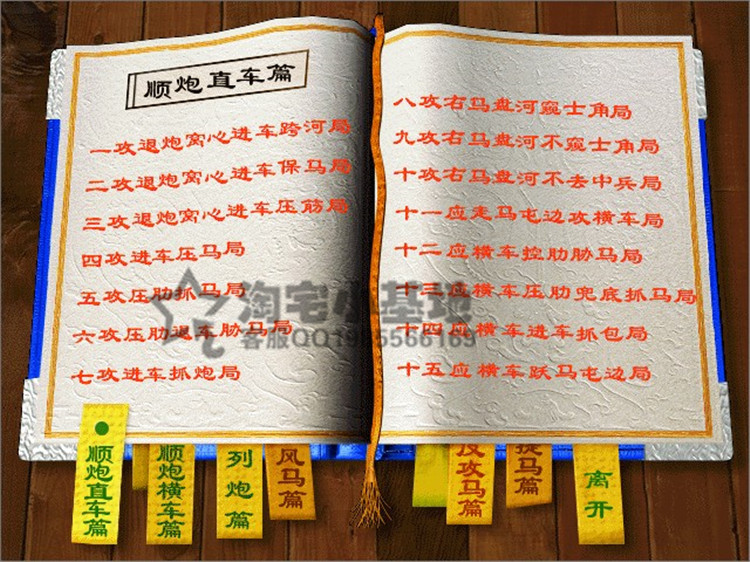 顺炮直车篇
一攻退炮窝心进车跨河局
二攻退炮窝心进车保马局
三攻退炮窝心进车压筋局
四攻进车压马局
五攻压肋抓马局
六攻压肋退车胁马局
七攻进车抓炮局
八攻右马盘河窥士角局
九攻右马盘河不窥士角局
十攻右马盘河不去中兵局
十一应走马屯边攻横车局
十二应横车控肋胁马局
十三应横车压肋兜底抓马局
十四应横车进车抓包局
十五应横车跃马屯边局
淘宅小基地
客服QQ1985566169
顺炮直车篇
顺炮横车篇
列炮篇
风马篇
反攻马篇
马篇
离开